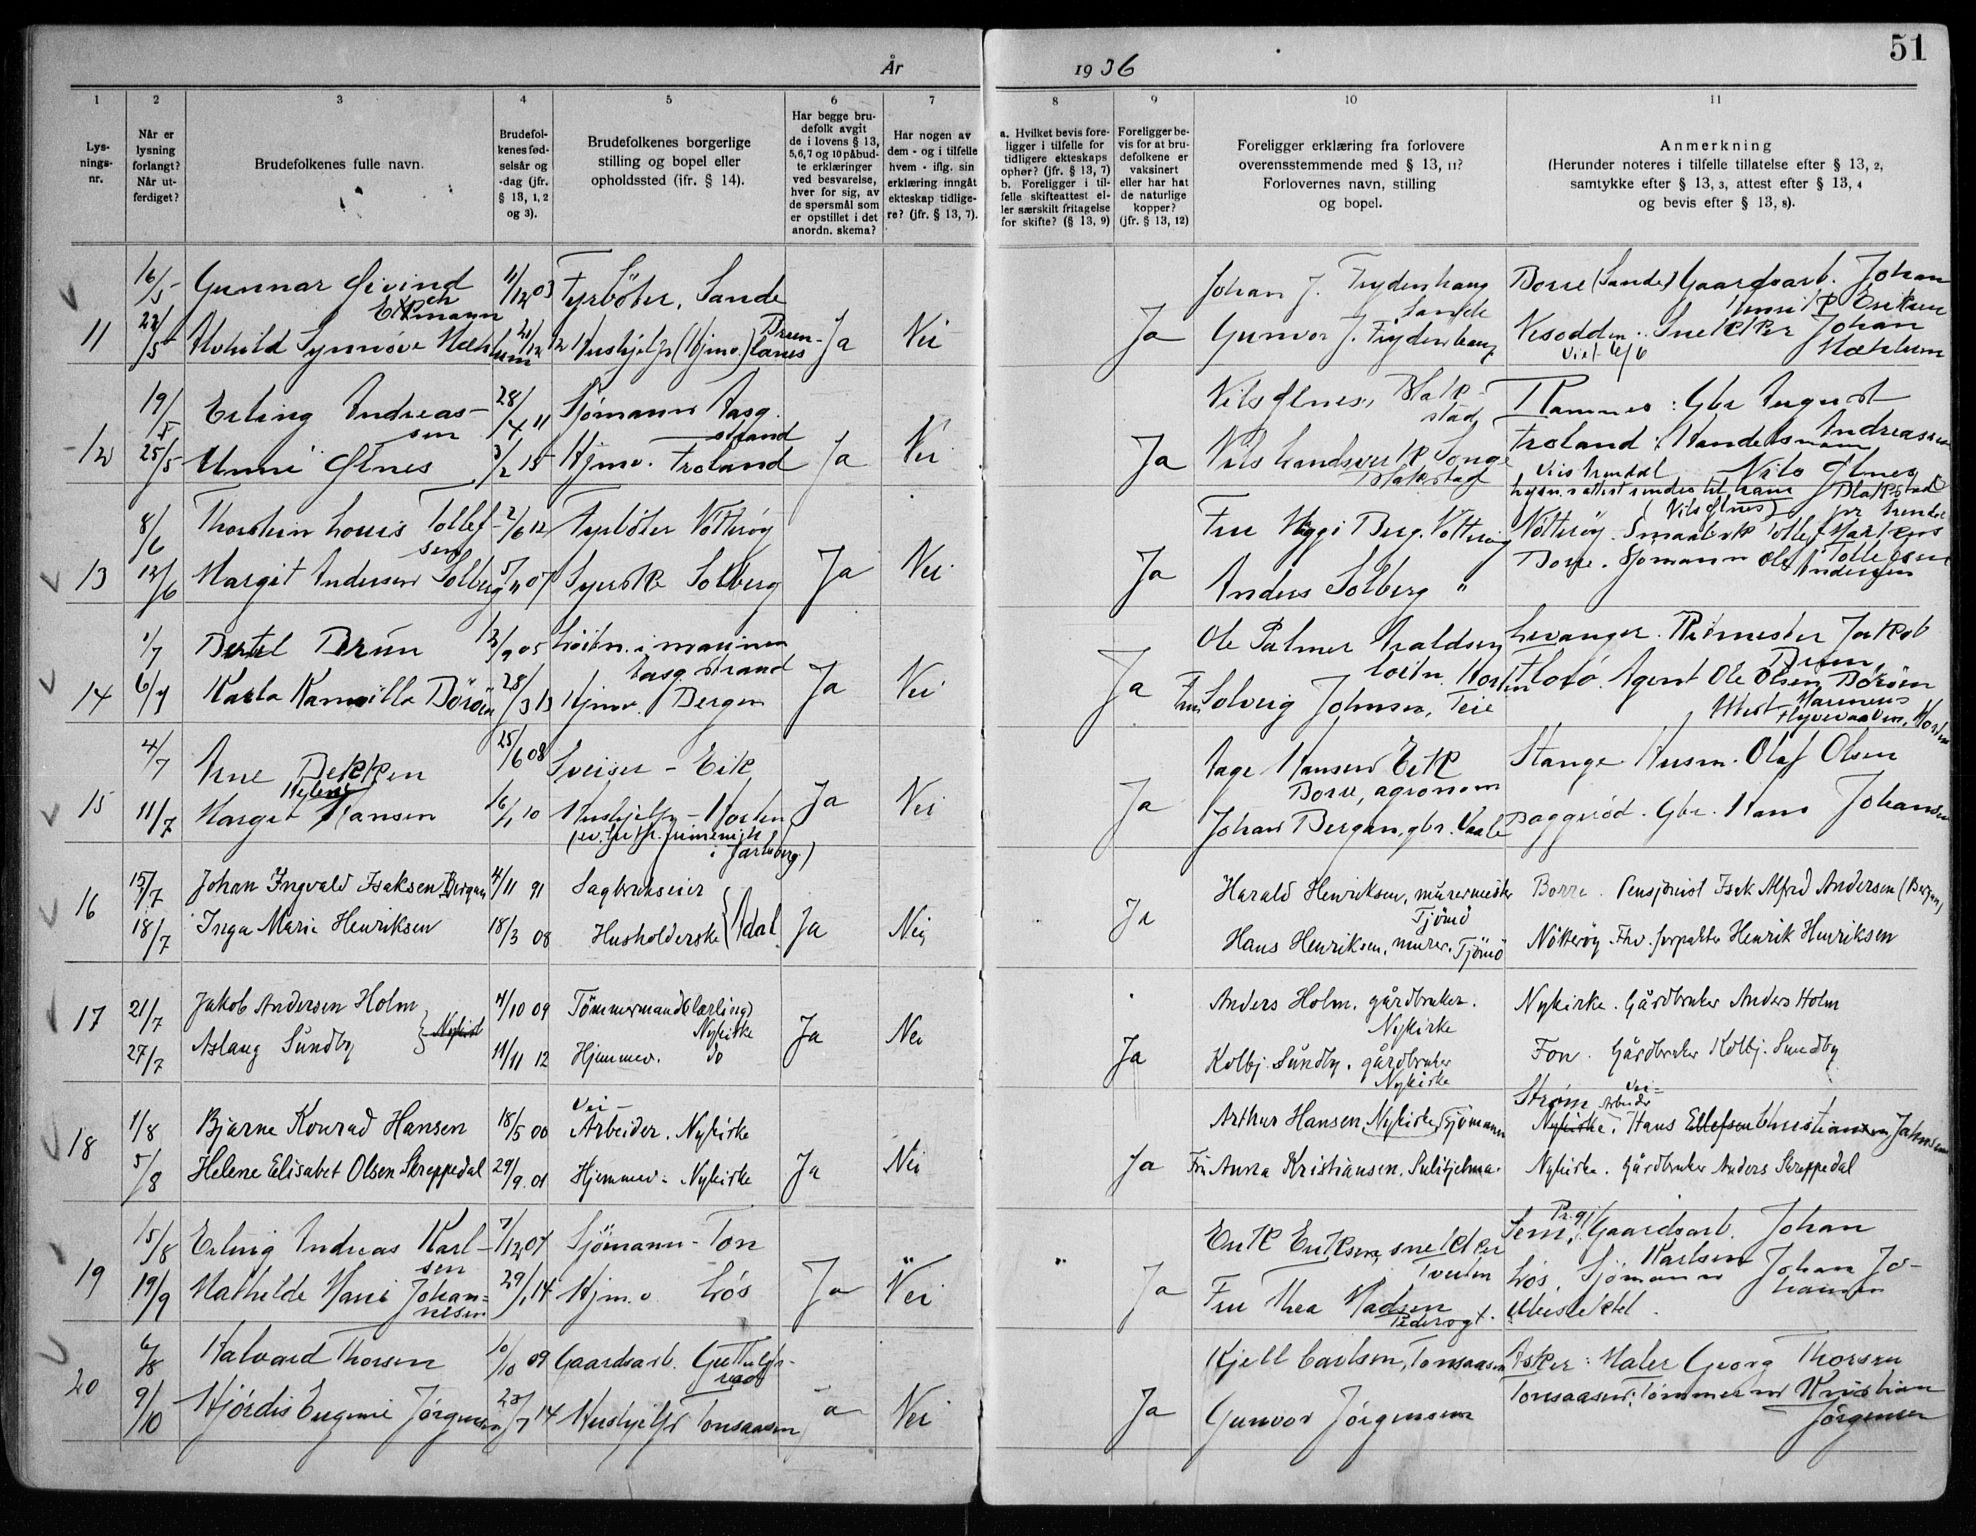 År 1936
51
1 2 3 4 5 6 7 8 9 10 11
Lysnings-nr.
Når er lysning forlangt? Når utferdiget?
Brudefolkenes fulle navn.
Brudefolkenes fødselsår og -dag (jfr. § 13, 1, 2 og 3).
Brudefolkenes borgerlige stilling og bopel eller opholdssted (jfr. § 14).
Har begge brudefolk avgit de i lovens § 13, 5,6,7 og 10 påbudte erklæringer ved besvarelse, hver for sig, av de spørsmål som er opstillet i det anordn. skema?
Har nogen av dem - og i tilfelle hvem - iflg. sin erklæring inngått ekteskap tidligere? (jfr. § 13, 7).
a. Hvilket bevis foreligger i tilfelle for tidligere ekteskaps ophør? (jfr. § 13, 7) b. Foreligger i tilfelle skifteattest eller særskilt fritagelse for skifte? (§ 13, 9)
Foreligger bevis for at brudefolkene er vaksinert eller har hat de naturlige kopper? (jfr. § 13, 12)
Foreligger erklæring fra forlovere overensstemmende med § 13, 11? Forlovernes navn, stilling og bopel.
Anmerkning (Herunder noteres i tilfelle tillatelse efter § 13, 2, samtykke efter § 13, 3, attest efter § 13, 4 og bevis efter § 13, 8).
16/5 Gunnar Øivind 11/12 03 Fyrböter, Sande Johan J. Frydenhaug Sande Borre (Sande) Gaardsarb. Johan
11 Synnöve Ja Nei Ja Gunvor J. Frydenhaug Snekker Johan Mæhlum
19/5 Erling Andreassen 28/4 11 Sjömann Aasgstrand Nils Ølnes, Blakstad Ramnes: Gbr August Andreassen
12 25/5 Unni Ølnes 3/2 15 Hjmv. Froland Ja Nei Ja Blakstad Froland: Handelsmann Nils Ølnes
8/6 Thorstein Louis Tollefsen 2/6 12 Fyrböter Nötteröy Fru Berg. Nötteröy Nötteröy.
13 12/6 Margit Andersen Solberg 5/11 07 Syerske Solberg Ja Nei Ja Anders Solberg " Borre. Sjömann Ole Andersen
1/7 Bertel Brun 13/9 05 Löitn. i marinen Aasgstrand Ole Palmer Araldsen Löitn. Horten Levanger. Jakob Brun,
14 6/7 Karla Kamilla Börön 28/3 13 Hjmv. Bergen Ja Nei Ja Fru Solveig Johnsen, Teie Florö. Agent Ole Olsen Börön
4/7 Arne Bekken 25/6 08 Sveiser - Eik Aage Hansen Eik Borre, agronom Stange Husm. Olaf Olsen
15 11/7 Margit Helene Hansen 16/1 10 Hushjelp - Horten Ja Nei Ja Johan Bergan, gbr. Vaale Baggeröd. Gbr. Hans Johansen
15/7 Johan Ingvald Isaksen Bergan 4/11 91 Sagbrukseier Harald Henriksen, murermester Tjömö Borre. Pensjonist Isak Alfred Andersen (Bergan)
16 18/7 Inga Marie Henriksen 18/3 08 Husholderske Adal Ja Nei Ja Hans Henriksen, murer. Tjömö Nötteröy. Fhv. forpakter Henrik Henriksen
17 21/7 Jakob Andersen Holm 4/10 09 Tömmermand(lærling) Nykirke Anders Holm. gårdbruker. Nykirke Nykirke. Gårdbruker Anders Holm
27/7 Aslaug Sundby 11/11 12 Hjemmev. do Ja Nei Ja Kolbj. Sundby. gårdbruker Nykirke Fon. Gårdbruker Kolbj. Sundby
1/8 Bjarne Konrad Hansen 18/5 00 Vei-Arbeider. Nykirke Arthur Hansen Nykirke, Sjömann Ström Nykirke. Vei-Arbeider Hans Ellefsen Christiansen, Jahnsen
18 5/8 Helene Elisabet Olsen Skreppedal 29/9 01 Hjemmev. Nykirke Ja Nei Ja Frk Anna Kristiansen. Sulitjelma. Nykirke. Gårdbruker Anders Skreppedal
15/8 Erling Andreas Karlsen 7/12 07 Sjömann - Fon Erik Eriksen, snekker Tveiten Sem, Gaardsarb. Johan Karlsen
19 19/9 Mathilde Marie Johannesen 29/1 14 Hjm.v. Lös Ja Nei Ja Fru Thea Madsen Lös, Sjömann Johan Johansen
6/8 Halvard Thorsen 10/10 09 Gaardsarb. Kjell Carlsen, Tonsaasen Asker: Maler Georg Thorsen
20 9/10 Hjördis Eugenie Jörgensen 23/7 14 Hushjelp Tonsaasen Ja Nei Ja Gunvor Jörgensen Tonsaasen: Tömmerm Kristian Jörgensen